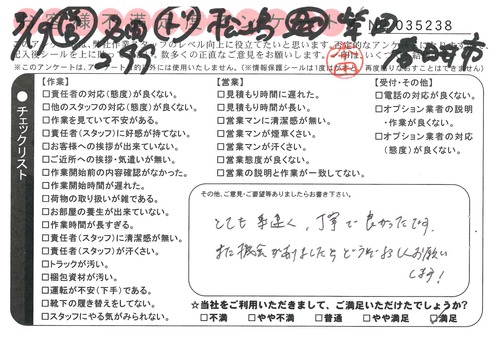 5/9 松嶋 柴田
035238
チェックリスト
【作業】
□責任者の対応(態度)が良くない。
□他のスタッフの対応(態度)が良くない。
□作業を見ていて不安がある。
□責任者(スタッフ)に好感が持てない。
□お客様への挨拶が出来ていない。
□ご近所への挨拶・気遣いが無い。
□作業開始前の内容確認がなかった。
□作業開始時間が遅れた。
□荷物の取り扱いが雑である。
□お部屋の養生が出来ていない。
□作業時間が長すぎる。
□責任者(スタッフ)に清潔感が無い。
□責任者(スタッフ)が汗くさい。
□トラックが汚い。
□梱包資材が汚い。
□運転が不安(下手)である。
□靴下の履き替えをしてない。
□スタッフにやる気がみられない。
【営業】
□見積もり時間に遅れた。
□見積もり時間が長い。
□営業マンに清潔感が無い。
□営業マンが煙草くさい。
□営業マンが汗くさい。
□営業態度が良くない。
□営業の説明と作業が一致してない。
【受付・その他】
□電話の対応が良くない。
□オプション業者の説明
・作業が良くない。
□オプション業者の対応
(態度)が良くない。
その他、ご意見・ご要望等ありましたらお書き下さい。
とても手速く、丁寧で良かったです。
また機会がありましたらどうぞよろしくお願い
します!
☆当社をご利用いただきまして、ご満足いただけたでしょうか?
□不満 □やや不満 □普通 □やや満足 □満足